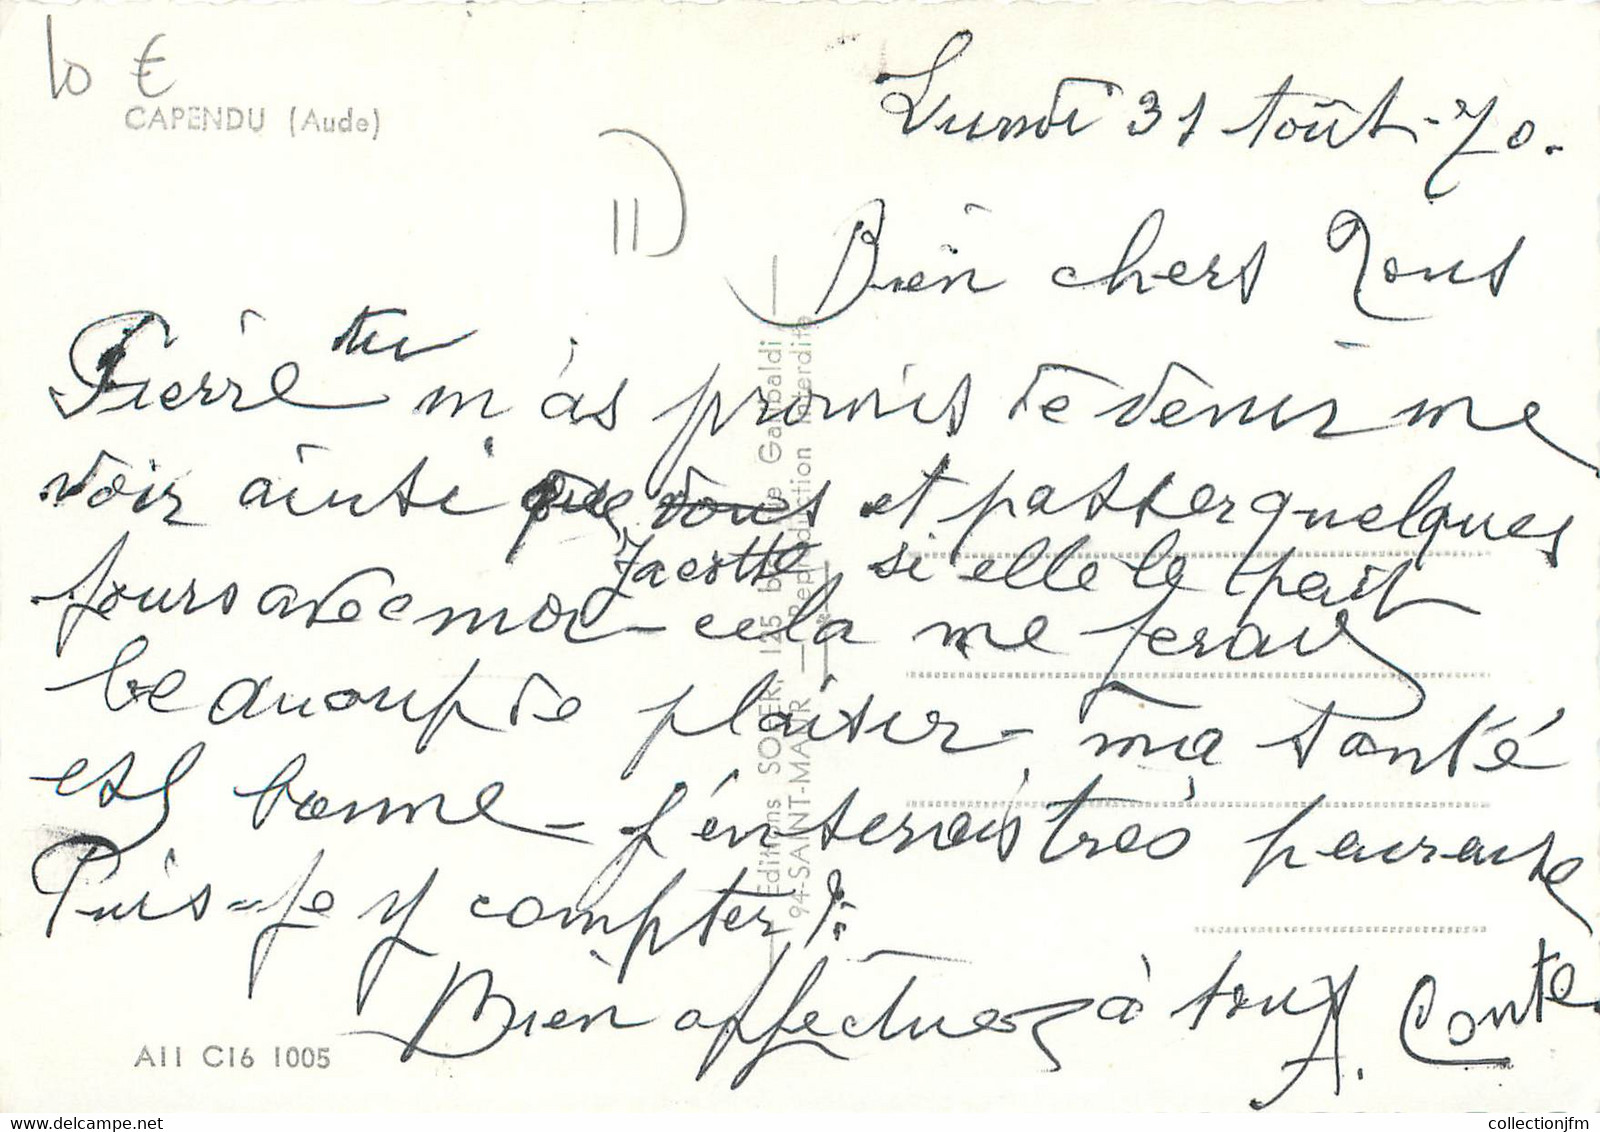 10 €
CAPENDU (Aude)
11
Lundi 31 Août - 70.
Bien chers Tous
Pierre tu m'as promis de venir me
voir ainsi que vous et passer quelques
Jacotte si elle le
jours avec moi - cela me ferait
beaucoup de plaisir - ma santé
est bonne - J'en serais très heureuse
Puis-je y compter ?
Bien affectueux à tous
A. Conte
Editions SOFER, 125 bd de Garibaldi —
94-SAINT-MAUR — Reproduction Interdite
A11 C16 1005
www.delcampe.net
collectionjfm